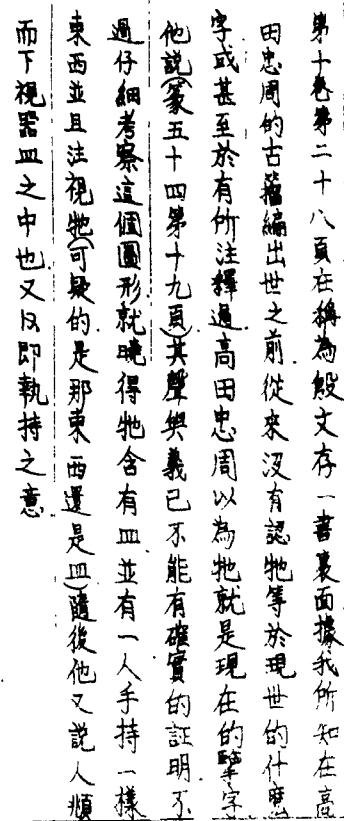 第十卷第二十八頁在稱為殷文存一書裏面據我所知在高
田忠周的古籀編出世之前從來沒有認牠等於現世的什麼
字或甚至於有所注釋過高田忠周以為牠就是現在的字
他說(篆五十四第十九頁)其聲與義已不能有確實的証明不
過仔細考察這個圖形就曉得牠含有皿並有一人手持一樣
東西並且注視牠(可疑的是那東西還是皿)隨後他又說人順
而下視器皿之中也又彐即執持之意